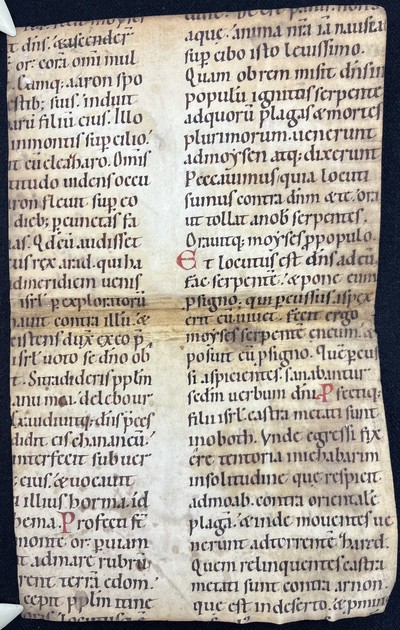 t dns. & ascender
or. cora omi mul
Cumq; aaron spo
stib; suis. induit
arũ filiũ eius. Illo
in montis sup cilio.
t cũ eleazaro. Omis
titudo uidens occu
ron fleuit sup eo
dieb; p cunctas fa
as. Qd cũ audisset
eus rex arad. qui ha
ad meridiem. uenis
isrl p exploratorũ
contra illũ. &
cistens dux ex eo p
isrl uoto se dno ob
t. Si tradideris pplm
in manu mea. delebo ur
xaudiuitq; dns p̃ces
didit eis chananeũ.
interfecit sub uer
eius. & uocauit
illius horma. id
hema. Profecti st̃
monte or. p uiam
t ad mare rubrũ
rent terrã edom.
cepit pplm itine
aque. anima nr̃a iã nausia
sup cibo isto leuissimo.
Quam ob rem misit dns in
populũ ignitos serpente
ad quorũ plagas & mortes
plurimorum. uenerunt
ad moysen atq; dixerunt
Peccauimus quia locuti
sumus contra dnm & te. ora
ut tollat a nob serpentes.
Orauitq; moyses p populo.
Et locutus est dns ad eũ.
Fac serpentẽ. & pone eum
p signo. qui pcussus aspex
erit eũ uiuet. Fecit ergo
moyses serpentẽ eneum. &
posuit eũ p signo. Quẽ pcus
si aspicientes. sanabantur
sedm uerbum dni. Profectiq;
filii isrl. castra metati sunt
in oboth. Vnde egressi fix
ere tentoria in hiebarim
in solitudine que respicit
ad moab. contra orientalẽ
plagã. & inde mouentes ue
nerunt ad torrentẽ hared.
Quem relinquentes castra
metati sunt contra arnon.
que est in deserto. & p min